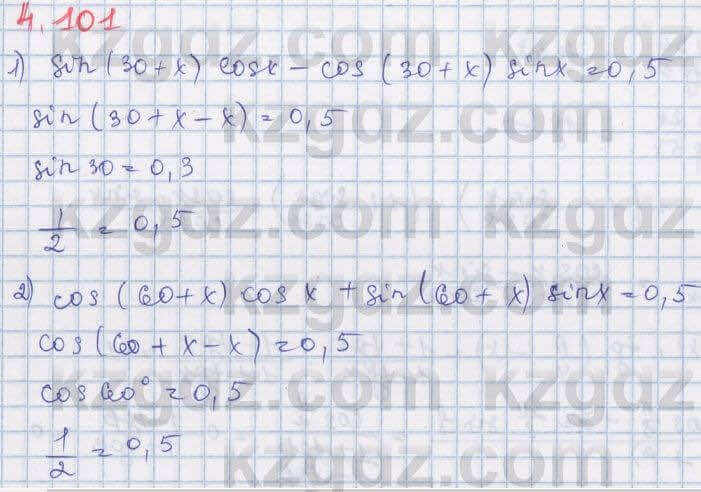 4.101
1) sin(30+x) cosx - cos(30+x) sinx = 0,5
sin(30+x-x) = 0,5
sin 30 = 0,3
1/2 = 0,5
2) cos(60+x) cos x + sin(60+x) sinx = 0,5
cos(60+x-x) = 0,5
cos60° = 0,5
1/2 = 0,5
kzgdz.com
kzgdz.com
kzgdz.com
kzgdz.com
kzgdz.com
kzgdz.com